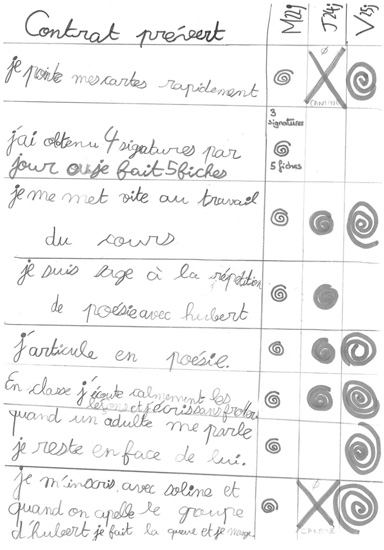 Contrat prévert M22j J24j V25j
je pointe mes cartes rapidement Ø
CANTINE
3
signatures
j'ai obtenu 4 sigatures par
jour ou je fait 5 fiches 5 fiches
je me met vite au travail
du cours
je suis sage à la répétition
de poésie avec hubert
j'articule en poésie.
En classe j'écoute calmement les
leçons et j'écris sans
quand un adulte me parle
je reste en face de lui.
je m'inscris avec soline et Ø
quand on apelle le groupe
d'hubert je fait la queue et je mange.